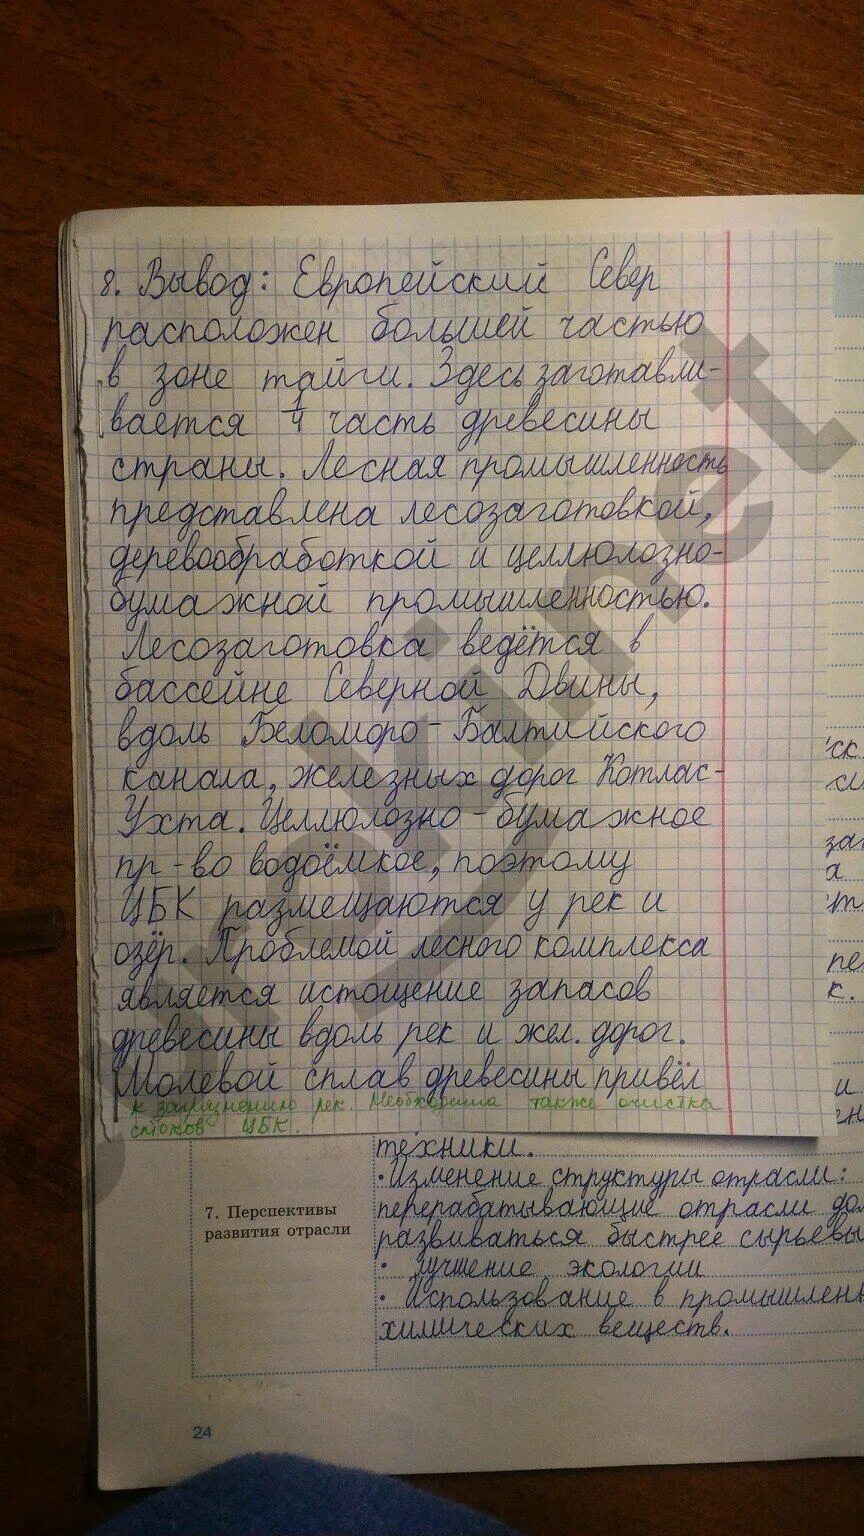 8. Вывод: Европейский Север
расположен большей частью
в зоне тайги. Здесь заготавли-
вается 1/4 часть древесины
страны. Лесная промышленность
представлена лесозаготовкой,
деревообработкой и целлюлозно-
бумажной промышленностью.
Лесозаготовка ведётся в
бассейне Северной Двины,
вдоль Беломоро-Балтийского
канала, железных дорог Котлас-
Ухта. Целлюлозно-бумажное
пр-во водоёмкое, поэтому
ЦБК размещаются у рек и
озёр. Проблемой лесного комплекса
является истощение запасов
древесины вдоль рек и жел. дорог.
Молевой сплав древесины привёл
к загрязнению рек. Необходима также очистка
стоков ЦБК.
техники.
• Изменение структуры отрасли:
перерабатывающие отрасли дол
развиваться быстрее сырьевы
• лучшение экологии
• Использование в промышлен
химических веществ.
7. Перспективы
развития отрасли
24